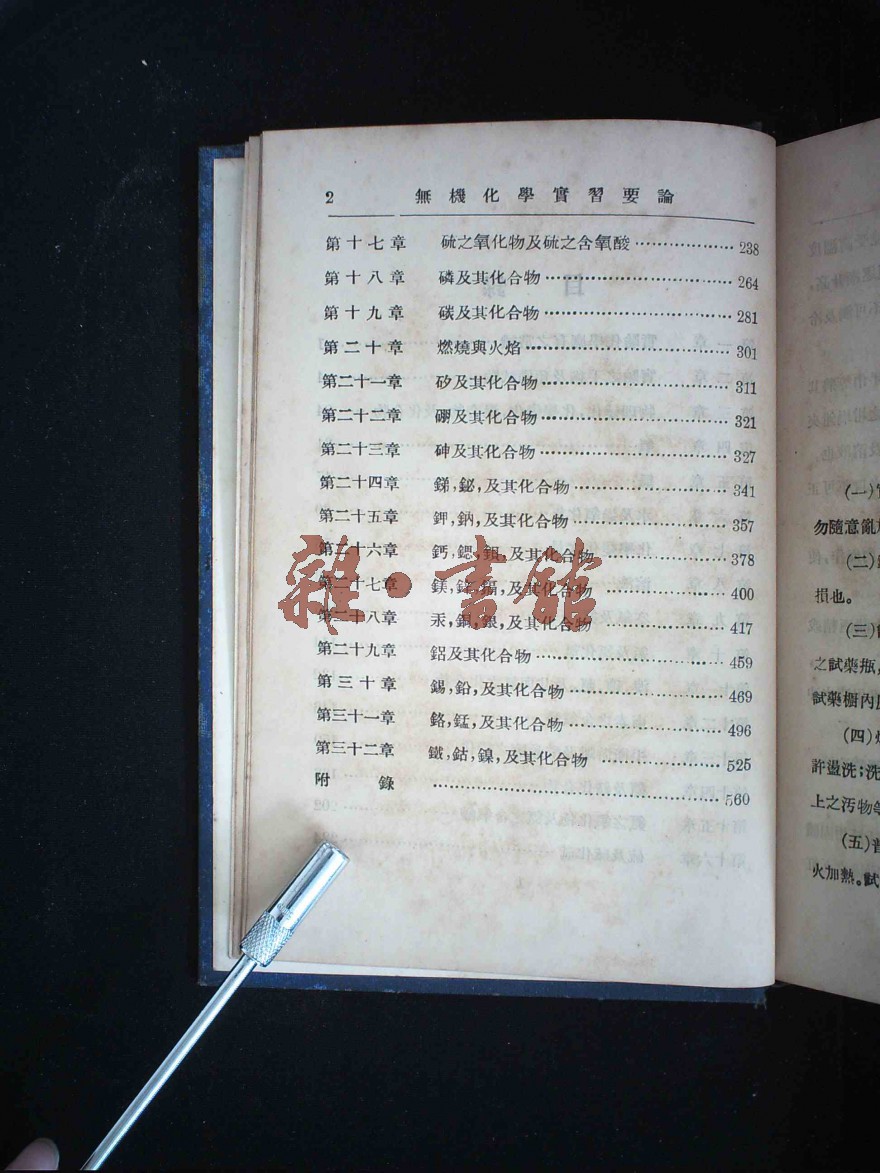 2 無機化學實習要論
第十七章 硫之氧化物及硫之含氧酸 238
第十八章 磷及其化合物 264
第十九章 碳及其化合物 281
第二十章 燃燒與火焰 301
第二十一章 矽及其化合物 311
第二十二章 硼及其化合物 321
第二十三章 砷及其化合物 327
第二十四章 銻,鉍,及其化合物 341
第二十五章 鉀,鈉,及其化合物 357
第二十六章 鈣,鍶,鋇,及其化合物 378
第二十七章 鎂,鋅,鎘,及其化合物 400
第二十八章 汞,銅,銀,及其化合物 417
第二十九章 鋁及其化合物 459
第三十章 錫,鉛,及其化合物 469
第三十一章 鉻,錳,及其化合物 496
第三十二章 鐵,鈷,鎳,及其化合物 525
附錄 560
雜·書館
(一)
勿隨意亂
(二)
損也。
(三)
之試藥瓶,
試藥櫥內
(四)
許盪洗;洗
上之汚物等
(五)普
火加熱。試